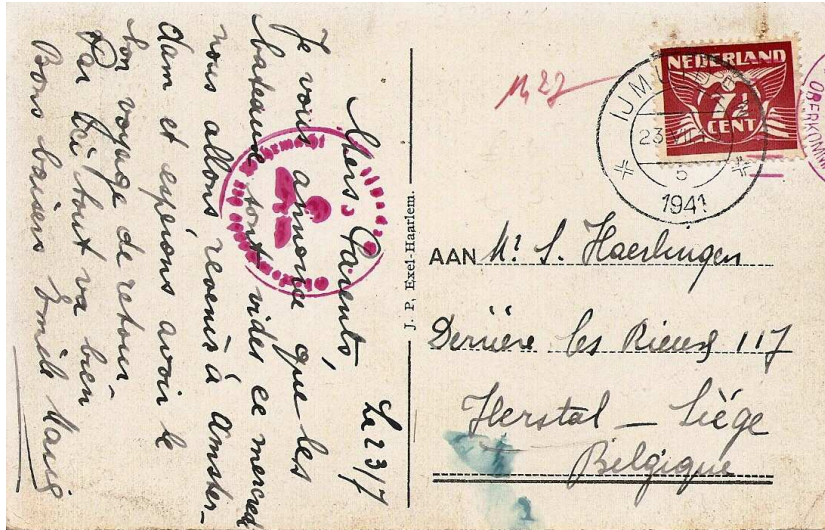 Le 23/7
Chers Parents,
Je vous annonce que les
bateaux sont vides ce mercredi
nous allons revenir à Amster-
dam et espérons avoir le
bon voyage de retour
Par ici tout va bien
Bons baisers Emile Marie
J. P. Exel-Haarlem.
NEDERLAND
7½
CENT
IJMUIDEN
23 VII
5
1941
OBERKOMM
AAN Mr. S. Haerlingen
Derrière les Rieux 117
Herstal — Liège
Belgique